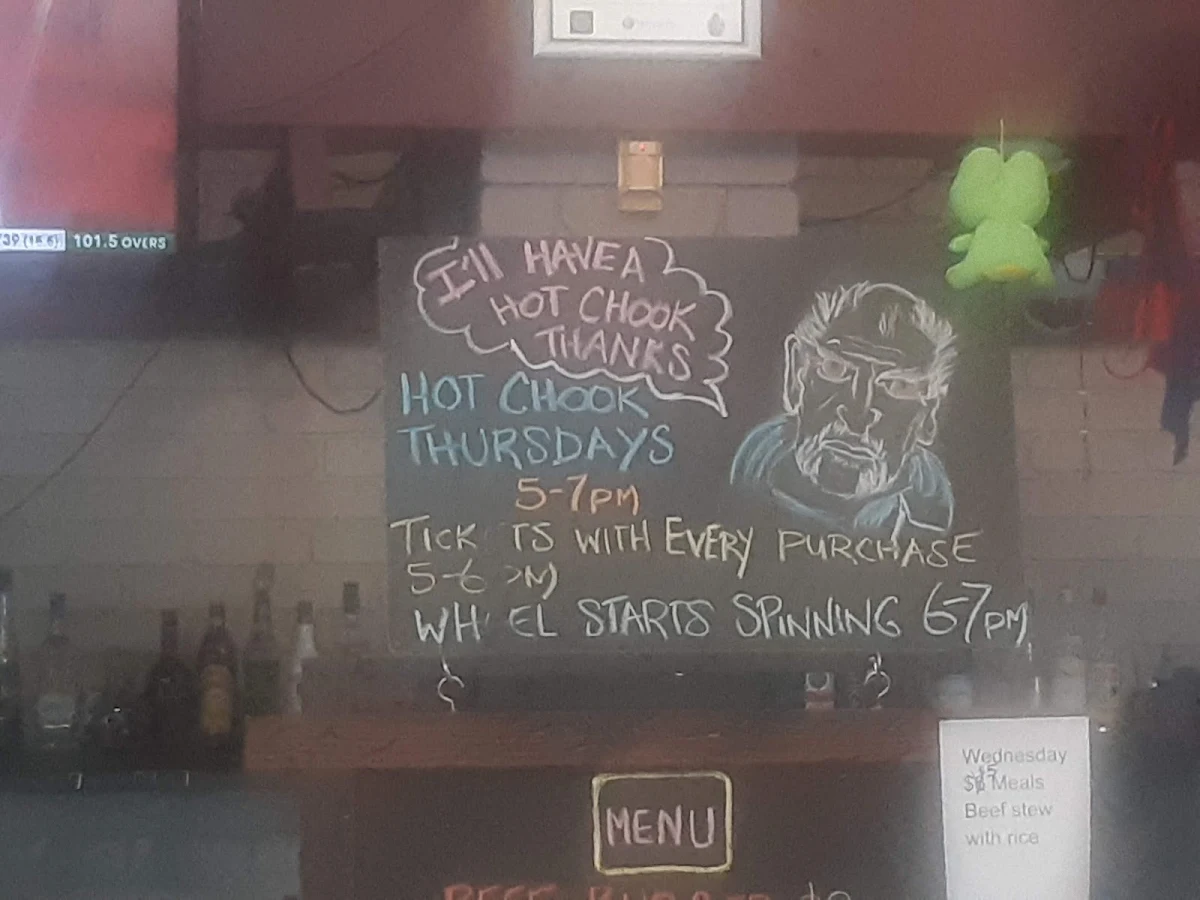 101.5 OVERS
I'll HAVE A
HOT CHOOK
THANKS
HOT CHOOK
THURSDAYS
5-7PM
TICK TS WITH EVERY PURCHASE
5-6 PM
WH EL STARTS SPINNING 6-7PM
Wednesday
Meals
Beef stew
with rice
MENU
BEEF BURGER